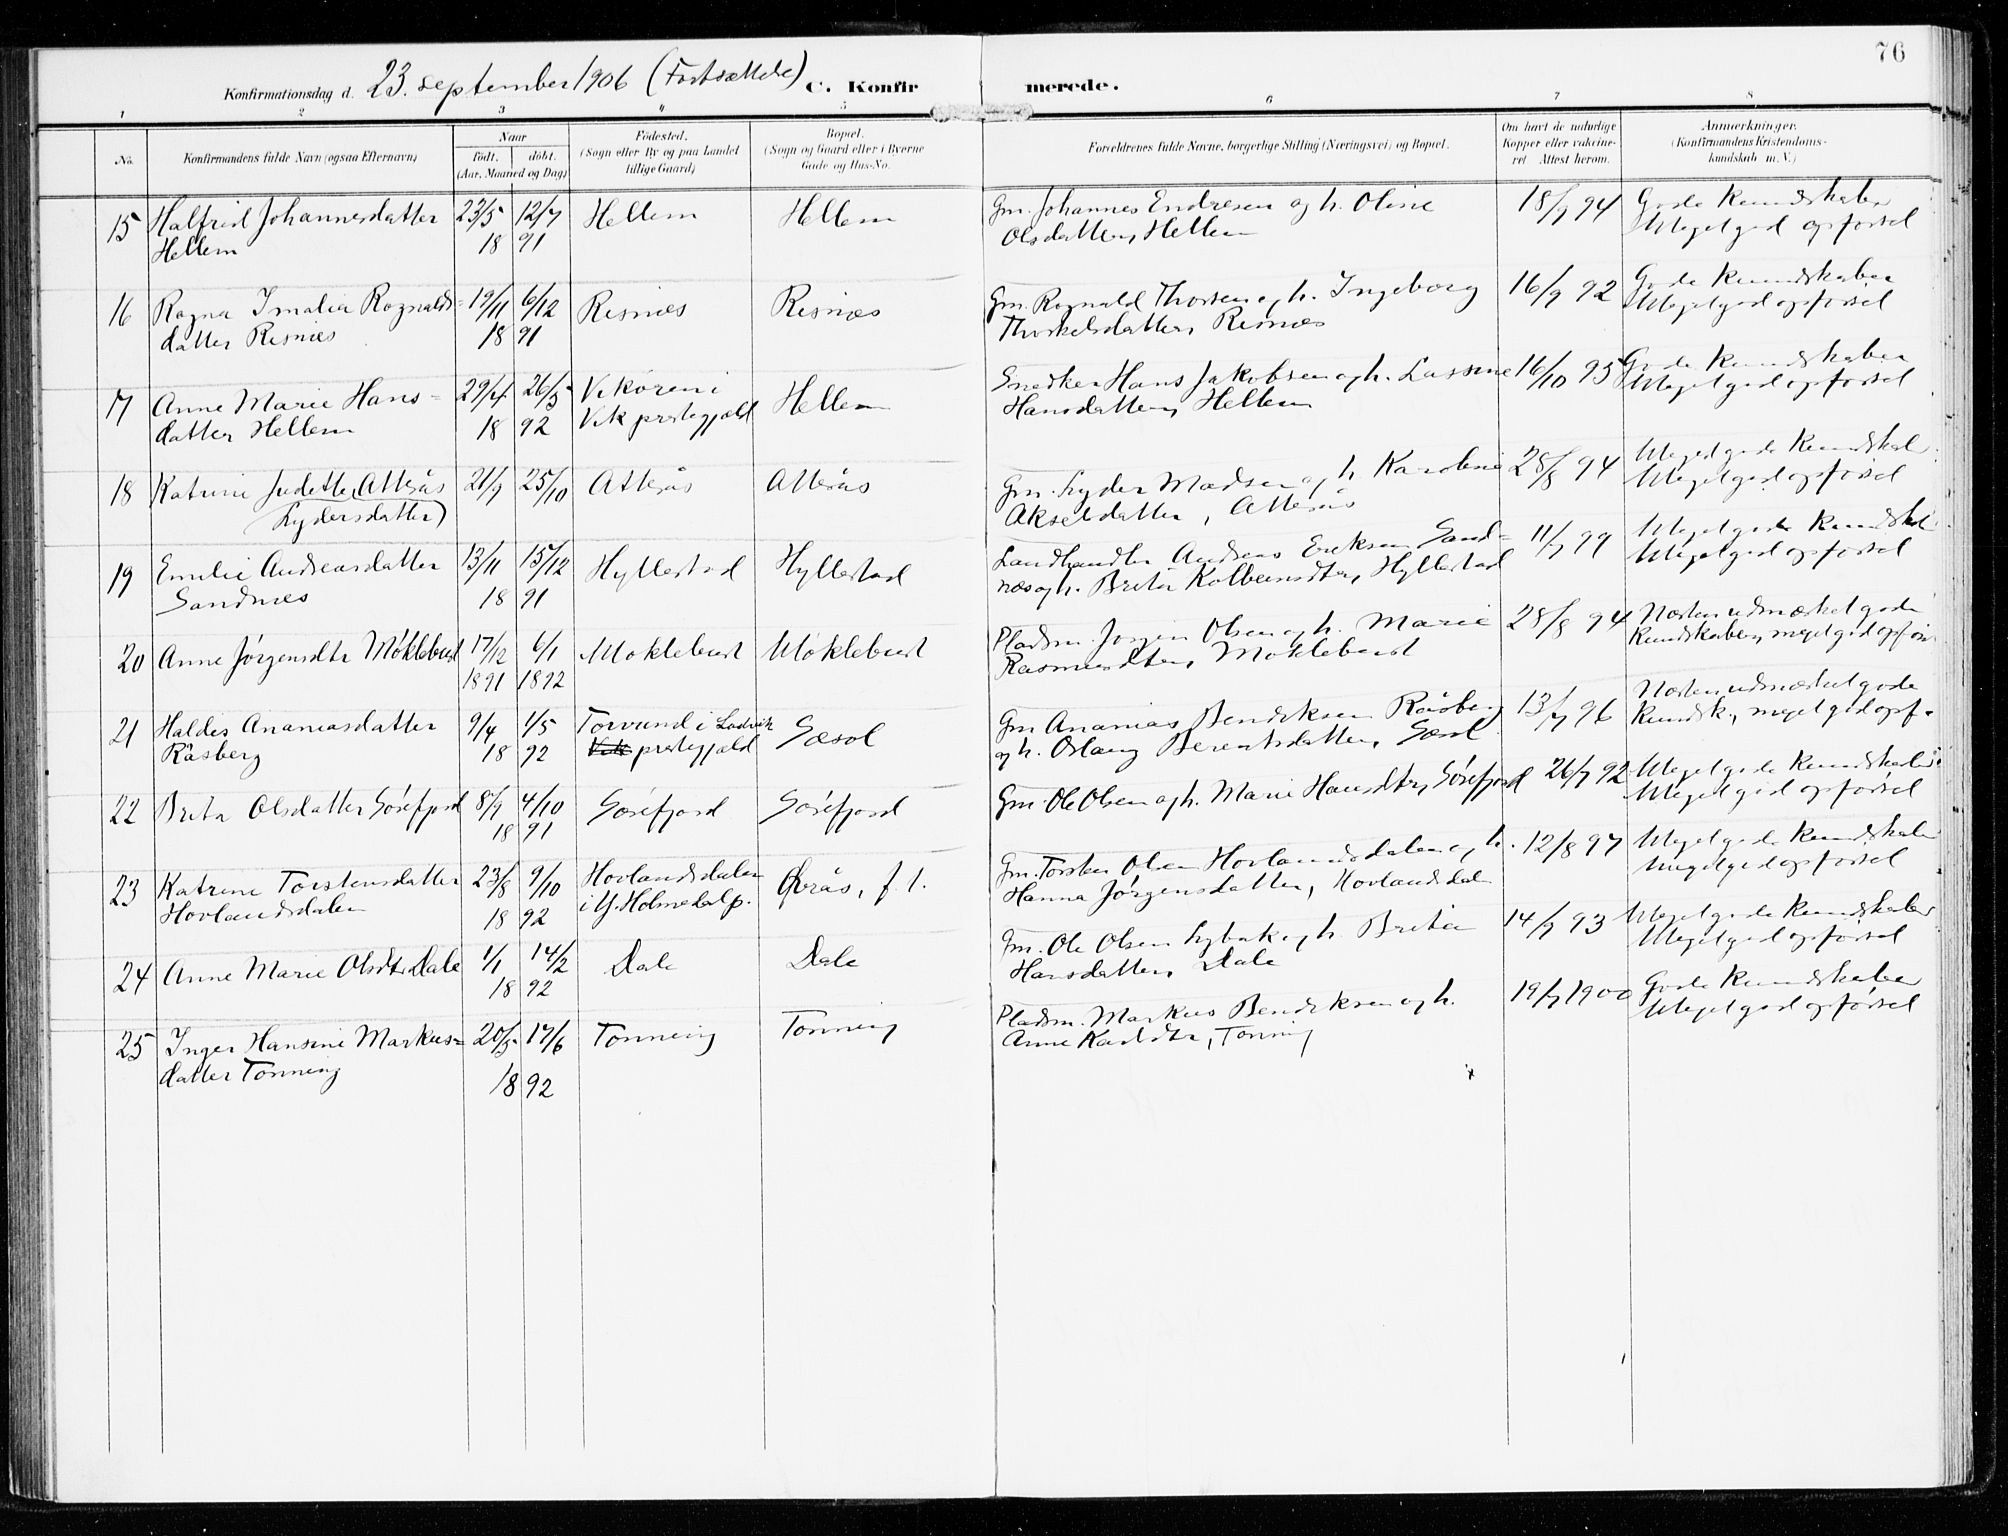 76
Konfirmationsdag d. 23. september 1906 (Fortsættelse) C. Konfirmerede.
1 2 3 4 5 6 7 8
No.
Konfirmandens fulde Navn (ogsaa Efternavn)
Naar
født. døbt.
(Aar, Maaned og Dag)
Fødested.
(Sogn eller By og paa Landet
tillige Gaard)
Bopæl.
(Sogn og Gaard eller i Byerne
Gade og Hus-No.
Forældrenes fulde Navne, borgerlige Stilling (Næringsvei) og Bopæl.
Om havt de naturlige
Kopper eller vaccine-
ret Attest herom.
Anmærkninger.
(Konfirmandens Kristendoms-
kundskab m. V.)
15 Halfrid Johannesdatter 23/5 12/7 Hellem Hellem Gm. Johannes Endresen og h. Oline 18/9 94 Gode Kundskaber
Hellem 18 91 Olsdatter, Hellem Meget god opførsel
16 Ragna Imalia Rognalds- 19/11 6/12 Risnæs Risnæs Gm. Rognald Thorsen og h. Ingeborg 16/9 92 Gode Kundskaber
datter Risnæs 18 91 Thorkelsdatter, Risnæs Meget god opførsel
17 Anne Marie Hans- 29/4 26/5 Vikøren i Hellem Snedker Hans Jakobsen og h. Lassine 16/10 95 Gode Kundskaber
datter Hellem 18 92 Vik prestegjæld Hansdatter, Hellem Meget god opførsel
18 Katrine Judette Atterås 21/9 25/10 Atterås Atterås Gm. Lyder Madsen og h. Karoline 28/8 94 Meget gode Kundskab.
(Lydersdatter) Akseldatter, Atterås Meget god opførsel
19 Emilie Andreasdatter 13/11 15/12 Hyllestad Hyllestad Landhandler Andreas Eriksen Sand- 11/7 99 Meget gode Kundskab.
Sandnæs 18 91 næs og h. Brita Kolbeinsdtr, Hyllestad Meget god opførsel
20 Anne Jørgensdtr Møklebust 17/12 6/1 Møklebust Møklebust Pladsm. Jørgen Olsen og h. Marie 28/8 94 Næsten udmærket gode
1891 1892 Rasmusdtr, Møklebust Kundskaber, meget god opførs
21 Haldis Ananiasdatter 9/4 1/5 Torvund i Ladvik Sæsol Gm Ananias Bendiksen Råsberg 13/7 96 Næsten udmærket gode
Råsberg 18 92 Vik prestegjæld og h. Oslaug Berentsdatter, Sæsol Kundsk., meget god opf.
22 Brita Olsdatter Sørefjord 8/9 4/10 Sørefjord Sørefjord Gm. Ole Olsen og h. Marie Hansdtr, Sørefjord 26/7 92 Meget gode Kundskaber
18 91 Meget god opførsel
23 Katrine Torstensdatter 23/8 9/10 Hovlandsdalen Øvrås, f.t. Gm. Torsten Olsen Hovlandsdalen og h. 12/8 97 Meget gode Kundskaber
Hovlandsdalen 18 92 i Y. Holmedal p. Hanna Jørgensdatter, Hovlandsdalen Meget god opførsel
24 Anne Marie Olsdtr Dale 1/1 14/2 Dale Dale Gm. Ole Olsen og h. Brita 14/9 93 Meget gode Kundskaber
18 92 Hansdatter, Dale Meget god opførsel
25 Inger Hansine Markus- 20/5 17/6 Tønning Tønning Pladsm. Markus Bendiksen og h. 19/7 1900 Gode Kundskaber
datter Tønning 18 92 Anne Karldtr, Tønning Meget god opførsel